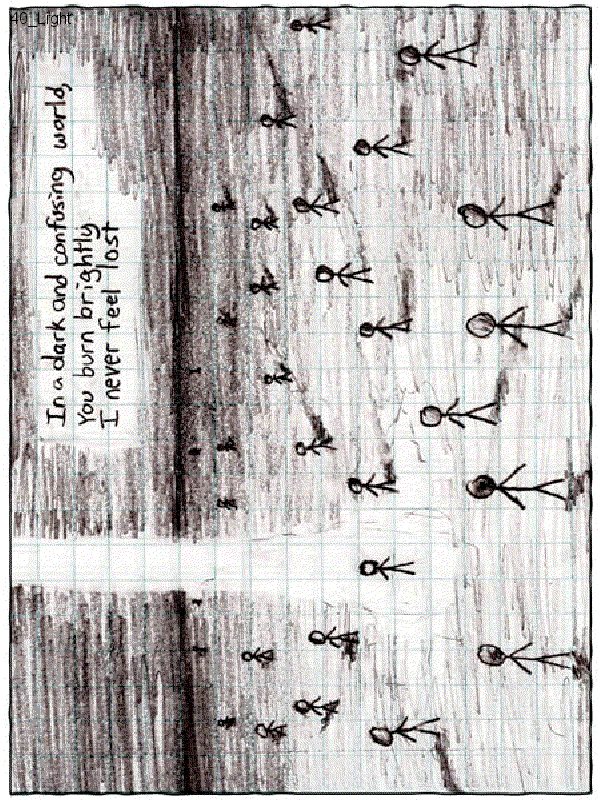 40_Light
In a dark and confusing world,
You burn brightly
I never feel lost